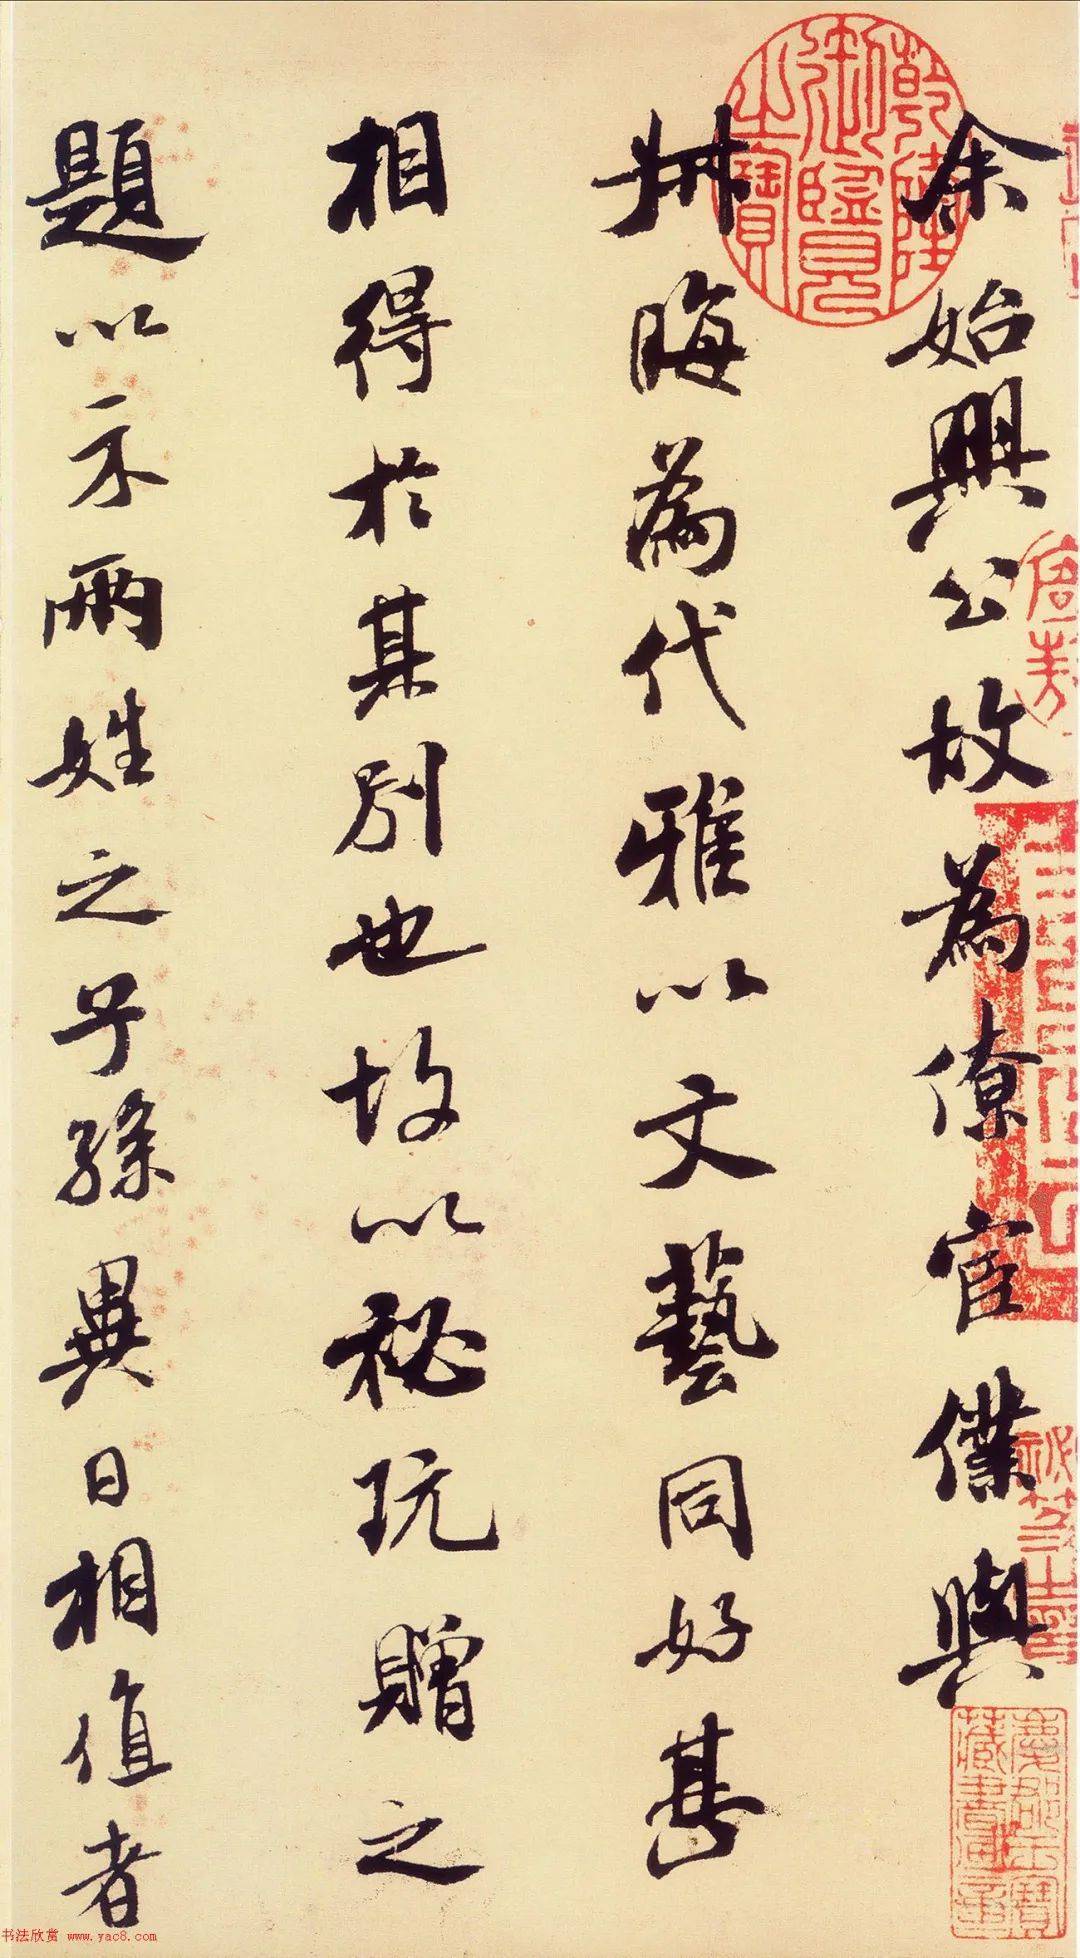 余始興公故為僚宦僕與
叔晦為代雅以文藝同好甚
相得於其別也故以秘玩贈之
題以示兩姓之子孫異日相值者
乾隆御覽之寶
书法欣赏 www.yac8.com